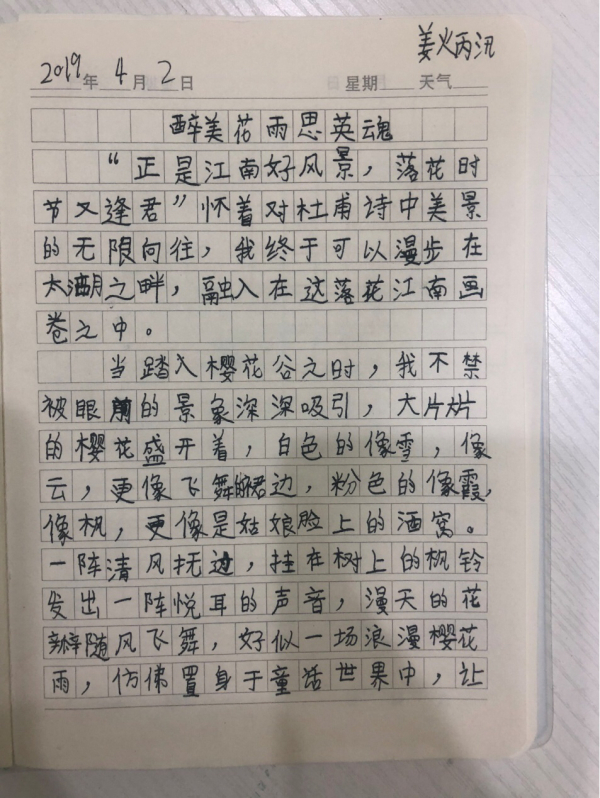 姜火丙汛
2019年4月2日 星期 天气
醉美花雨思英魂
“正是江南好风景，落花时
节又逢君”怀着对杜甫诗中美景
的无限向往，我终于可以漫步在
太湖之畔，融入在这落花江南画
卷之中。
当踏入樱花谷之时，我不禁
被眼前的景象深深吸引，大片片
的樱花盛开着，白色的像雪，像
云，更像飞舞的裙边，粉色的像霞，
像枫，更像是姑娘脸上的酒窝。
一阵清风抚过，挂在树上的枫铃
发出一阵悦耳的声音，漫天的花
瓣随风飞舞，好似一场浪漫樱花
雨，仿佛置身于童话世界中，让